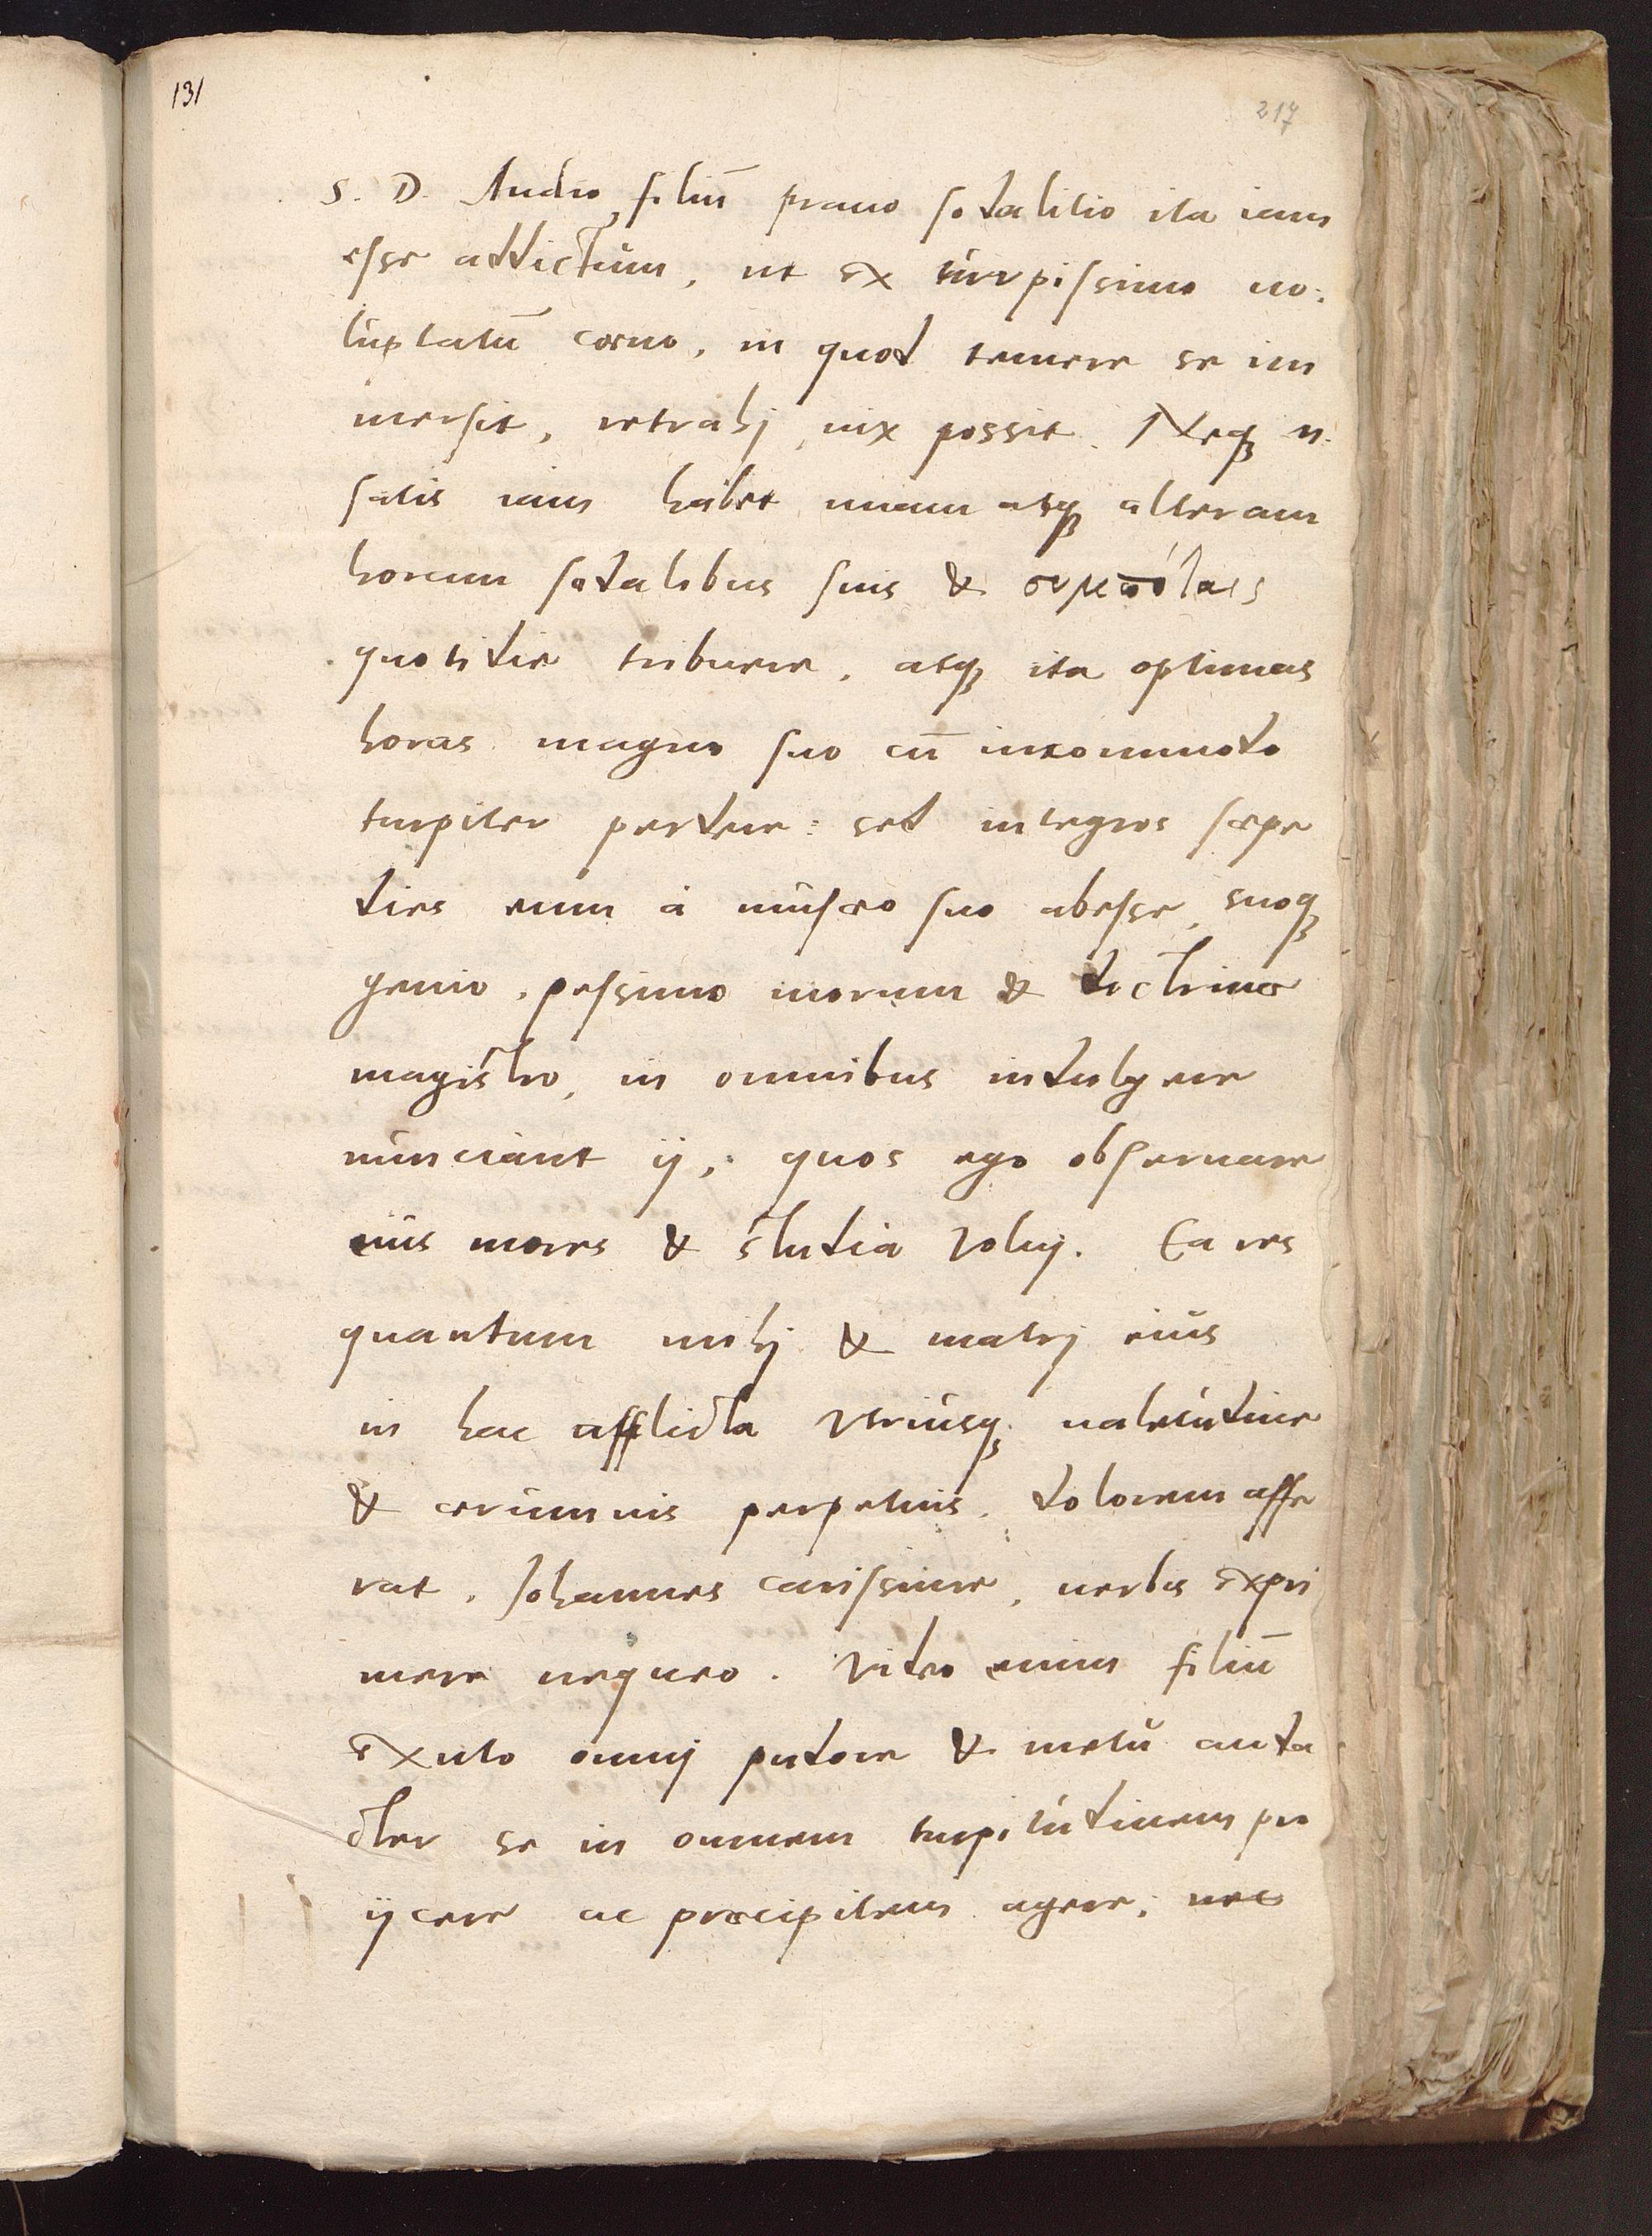 131
217
S. D. Audio, filiū prauo sodalitio ita iam
esse addictum, ut ex turpissimo uo:
luptatū coeno, in quod temere se im
mersit, retrahj uix possit. Neqꝫ n.
satis iam habet unam atqꝫ alteram
horam sodalibus suis & συμπόταις
quotidie tribuere, atqꝫ ita optimas
horas magno suo cū incommodo
turpiter perdere: sed integros sæpe
dies eum à musæo suo abesse, suoqꝫ
genio, pessimo morum & doctrinæ
magistro, in omnibus indulgere
nunciant ij, quos ego obseruare
eius mores & studia Voluj. Ea res
quantum mihj & matrj eius
in hac afflicta Vtriusqꝫ ualetudine
& ærumnis perpetuis, dolorem affe
rat, Johannes carissime, uerbis expri
mere nequeo. Video enim filiū
exuto omnj pudore & metu auda
cter se in omnem turpitudinem pro
ijcere ac præcipitem agere, nec